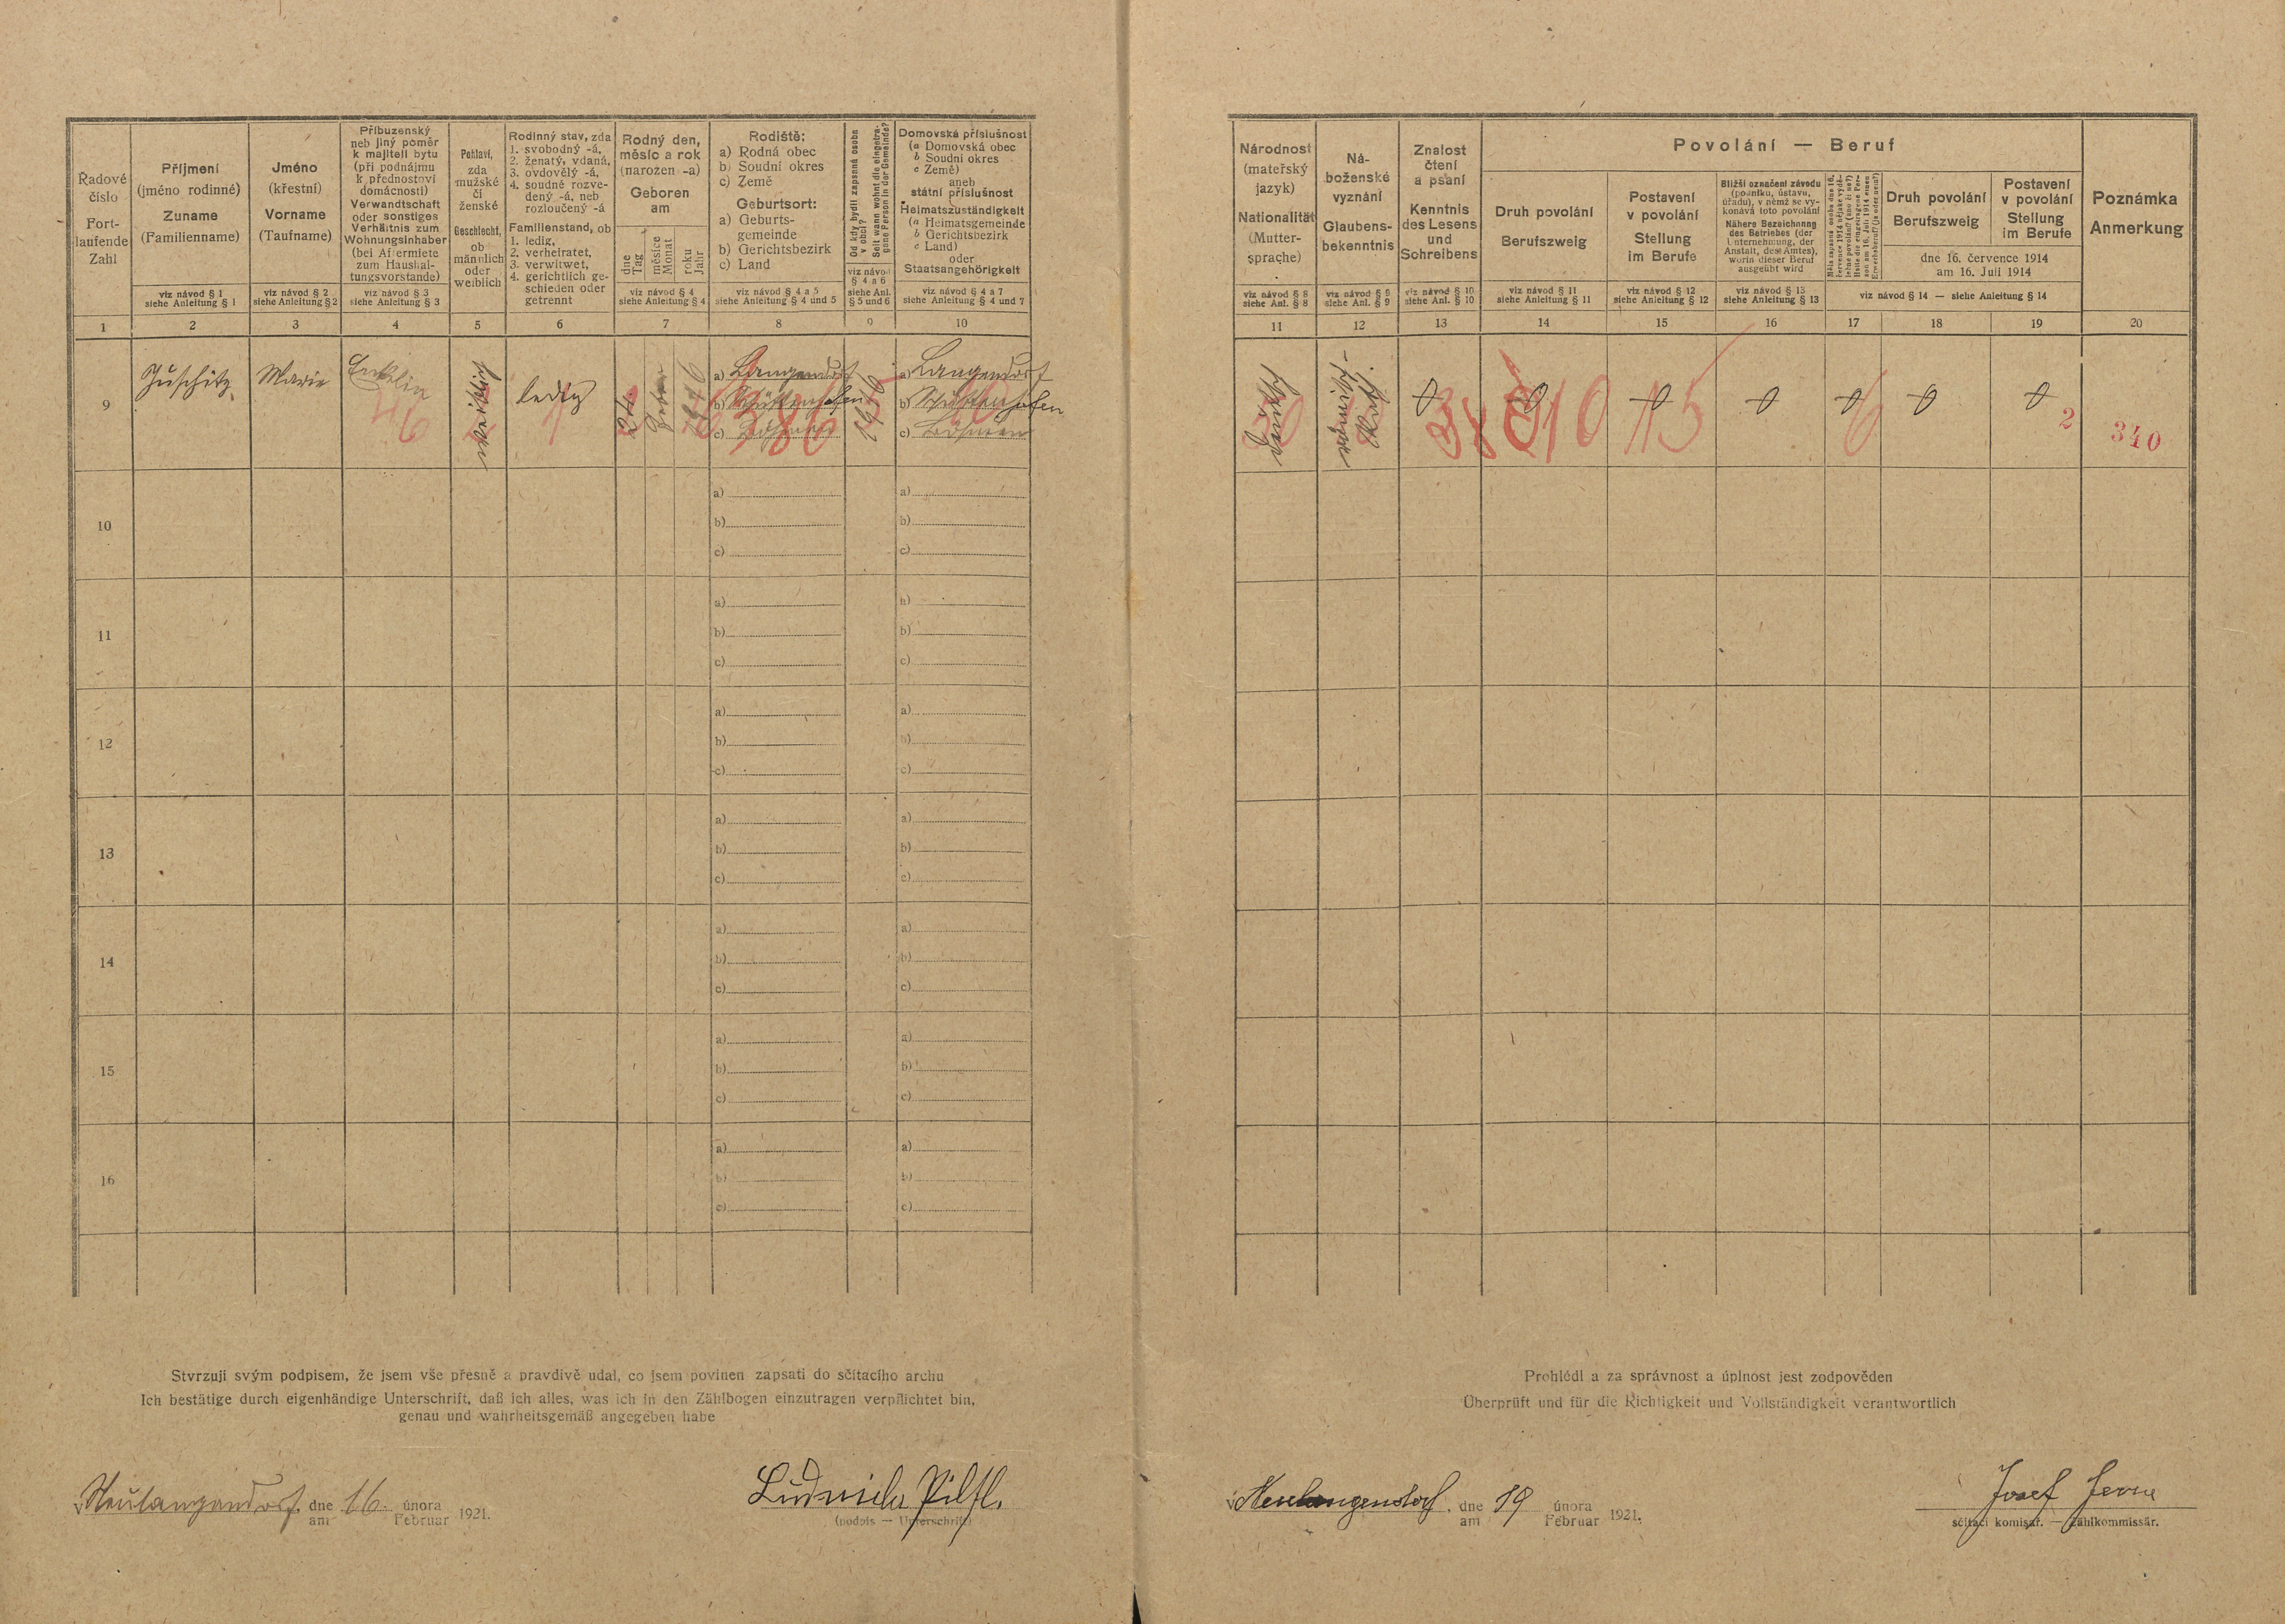 Řadové
číslo
Fort-
laufende
Zahl
Příjmení
(jméno rodinné)
Zuname
(Familienname)
viz návod § 1
siehe Anleitung § 1
Jméno
(křestní)
Vorname
(Taufname)
viz návod § 2
siehe Anleitung § 2
Příbuzenský
neb jiný poměr
k majiteli bytu
(při podnájmu
k přednostovi
domácnosti)
Verwandtschaft
oder sonstiges
Verhältnis zum
Wohnungsinhaber
(bei Aftermiete
zum Haushal-
tungsvorstande)
viz návod § 3
siehe Anleitung § 3
Pohlaví,
zda
mužské
či
ženské
Geschlecht,
ob
männlich
oder
weiblich
Rodinný stav, zda
1. svobodný -á,
2. ženatý, vdaná,
3. ovdovělý -á,
4. soudně rozve-
dený -á, neb
rozloučený -á
Familienstand, ob
1. ledig,
2. verheiratet,
3. verwitwet,
4. gerichtlich ge-
schieden oder
getrennt
Rodný den,
měsíc a rok
(narozen -a)
Geboren
am
dne
Tag
měsíce
Monat
roku
Jahr
viz návod § 4
siehe Anleitung § 4
Rodiště:
a) Rodná obec
b) Soudní okres
c) Země
Geburtsort:
a) Geburts-
gemeinde
b) Gerichtsbezirk
c) Land
viz návod § 4 a 5
siehe Anleitung § 4 und 5
Od kdy bydlí zapsaná osoba
v obci?
Seit wann wohnt die eingetra-
gene Person in der Gemeinde?
viz návod
§ 4 a 6
siehe Anl.
§ 5 und 6
Domovská příslušnost
(a Domovská obec
b Soudní okres
c Země)
aneb
státní příslušnost
Heimatszuständigkeit
(a Heimatsgemeinde
b Gerichtsbezirk
c Land)
oder
Staatsangehörigkeit
viz návod § 4 a 7
siehe Anleitung § 4 und 7
1 2 3 4 5 6 7 8 9 10
9 Marie Enkelin weiblich ledig 24.
a) Langendorf
b) Schüttenhofen
c) Böhmen
a) Langendorf
b) Schüttenhofen
c) Böhmen
10
a)
b)
c)
a)
b)
c)
11
a)
b)
c)
a)
b)
c)
12
a)
b)
c)
a)
b)
c)
13
a)
b)
c)
a)
b)
c)
14
a)
b)
c)
a)
b)
c)
15
a)
b)
c)
a)
b)
c)
16
a)
b)
c)
a)
b)
c)
Stvrzuji svým podpisem, že jsem vše přesně a pravdivě udal, co jsem povinen zapsati do sčítacího archu
Ich bestätige durch eigenhändige Unterschrift, daß ich alles, was ich in den Zählbogen einzutragen verpflichtet bin,
genau und wahrheitsgemäß angegeben habe
v Neulangendorf dne
am 16. února
Februar 1921.
(podpis — Unterschrift)
Národnost
(mateřský
jazyk)
Nationalität
(Mutter-
sprache)
viz návod § 8
siehe Anl. § 8
Ná-
boženské
vyznání
Glaubens-
bekenntnis
viz návod § 9
siehe Anl. § 9
Znalost
čtení
a psaní
Kenntnis
des Lesens
und
Schreibens
viz návod § 10
siehe Anl. § 10
Povolání — Beruf
Druh povolání
Berufszweig
viz návod § 11
siehe Anleitung § 11
Postavení
v povolání
Stellung
im Berufe
viz návod § 12
siehe Anleitung § 12
Bližší označení závodu
(podniku, ústavu,
úřadu), v němž se vy-
konává toto povolání
Nähere Bezeichnung
des Betriebes (der
Unternehmung, der
Anstalt, des Amtes),
worin dieser Beruf
ausgeübt wird
viz návod § 13
siehe Anleitung § 13
Druh povolání
Berufszweig
Postavení
v povolání
Stellung
im Berufe
dne 16. července 1914
am 16. Juli 1914
viz návod § 14 — siehe Anleitung § 14
Poznámka
Anmerkung
11 12 13 14 15 16 17 18 19 20
310 115 6 2 340
Prohlédl a za správnost a úplnost jest zodpověden
Überprüft und für die Richtigkeit und Vollständigkeit verantwortlich
v Neulangendorf dne
am 19 února
Februar 1921.
Josef
sčítací komisař. — Zählkommissär.